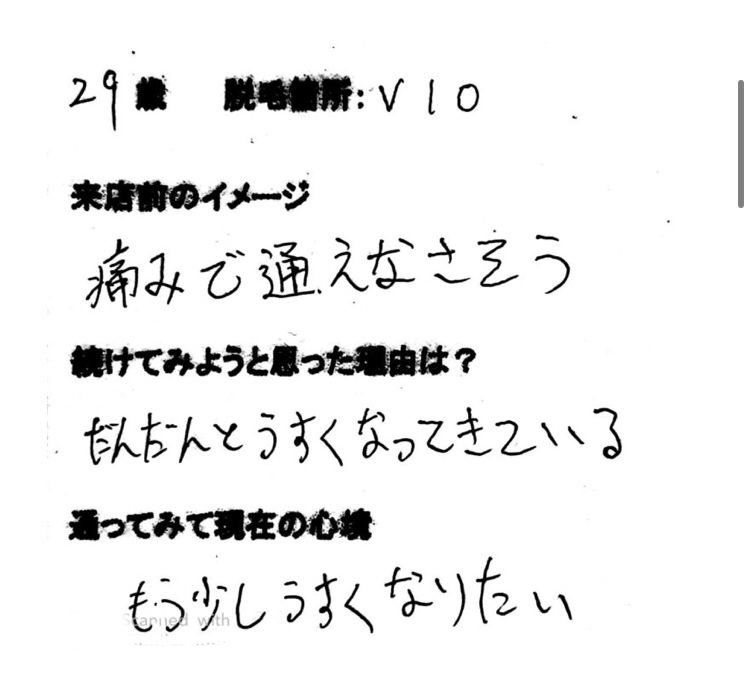 29歳 脱毛箇所: VIO
来店前のイメージ
痛みで通えなさそう
続けてみようと思った理由は？
だんだんとうすくなってきている
通ってみて現在の心境
もう少しうすくなりたい
Scanned with